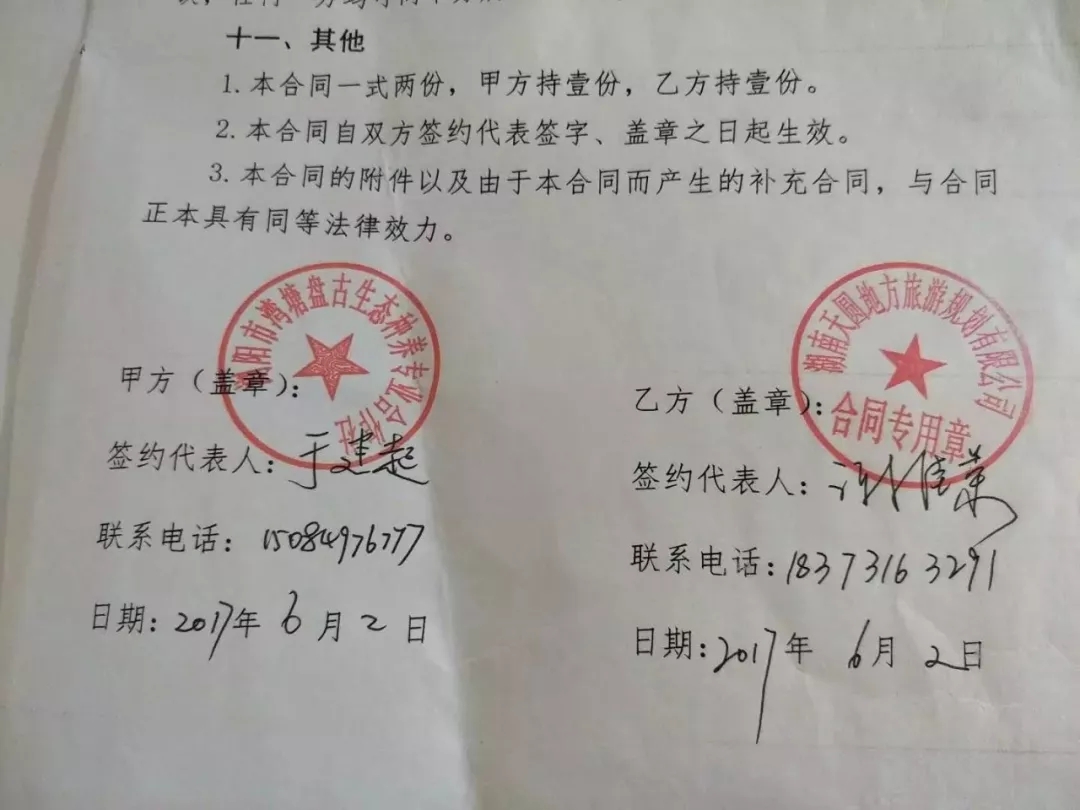 十一、其他
1.本合同一式两份，甲方持壹份，乙方持壹份。
2.本合同自双方签约代表签字、盖章之日起生效。
3.本合同的附件以及由于本合同而产生的补充合同，与合同
正本具有同等法律效力。
阳市湾塘盘古生态种养专业合作社
甲方（盖章）：
签约代表人：于建起
联系电话：15084976777
日期：2017年6月2日
湖南天圆地方旅游规划有限公司
合同专用章
乙方（盖章）：
签约代表人：
联系电话：18373163291
日期：2017年6月2日